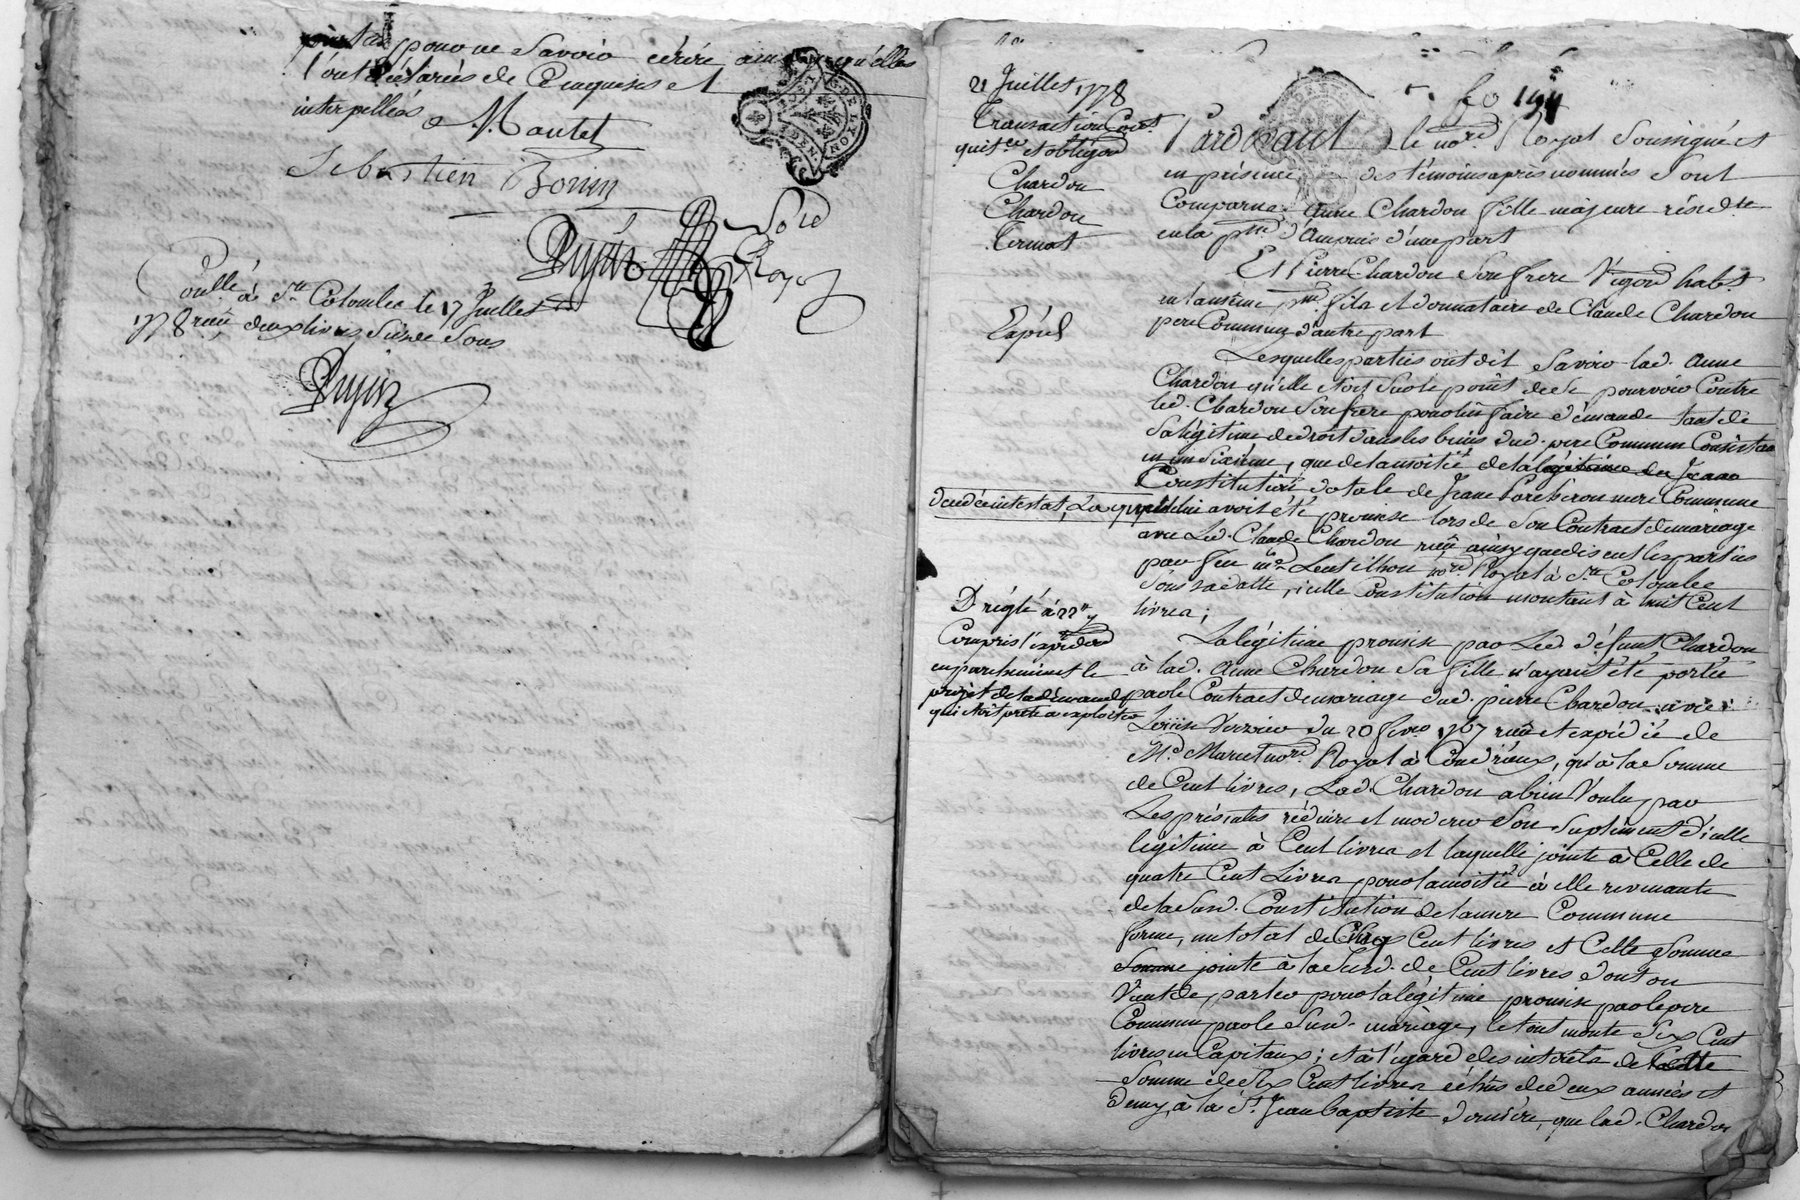 pour ne Savoir écrire ainsi qu'elles
l'ont déclarées de ce enquises et
interpellées Mantet
Sebastien Bonin
Pujin Nore
Royal
Conllé à Ste Colombe le 17 Juillet
1778 reçu deux livres Six de Sous
Pujin
DE LYON
fo 194
21 Juillet 1778
Transaction Cont.
quitce et obligaon
Chardon
Chardon
Expié
D réglé à 22"
Compris l'expedon
en parchemin et le
projet de la demande
qui étoit prete a exploiter
Pardevant le nore Royal Soussigné et
en présence des témoins après nommés Sont
Comparus Anne Chardon fille majeure réside
en la psse d'Ampuis d'une part
Et Pierre Chardon Son frere Vigon habt
en la même psse fils et donnataire de Claude Chardon
pere Commun d'autre part
Lesquelles parties ont dit Savoir lad. Anne
Chardon qu'elle étoit Sur le point de Se pourvoir Contre
led. Chardon Son frere pour lui faire démande tant de
Sa légitime de droit dans les biens dud. pere Commun Consistan
en un Sixieme, que de la moitié de la légitime de Jeanne
Constitution dotale de Jeanne mere Commune
décédée intestat, Laquelle lui avoit été promise lors de Son Contract de mariage
avec Led. Claude Chardon reçu ainsy que disent les parties
par feu Me Lentilhon nore Royal à Ste Colombe
Sous Sa datte, icelle Constitution montant à huit Cent
livres;
La légitime promise par Led. défunt Chardon
à lad. Anne Chardon Sa fille n'ayant été portée
par le Contract de mariage dud. pierre Chardon avec
Louise Verzier du 20 fevr 1767 reçu et expédié de
Me Mariet nore Royal à Condrieux, qu'à la Somme
de Cent livres, Lad. Chardon a bien Voulu par
Les présentes réduire et moderer Son Suplément d'icelle
légitime à Cent livres et laquelle jointe à Celle de
quatre Cent Livres pour la moitié à elle revenante
de la Susd. Constitution de la mere Commune
forme, un total de Cinq Cent livres et Cette Somme
Somme jointe à la Susd. de Cent livres dont on
Vient de parler pour la légitime promise par le pere
Commun par le Susd. mariage, le tout monte Six Cent
livres en Capitaux; et à l'égard des intérêts de Cette
Somme de Six Cent livres échus de deux années et
demy à la St Jean Baptiste derniére, que lad. Chardon